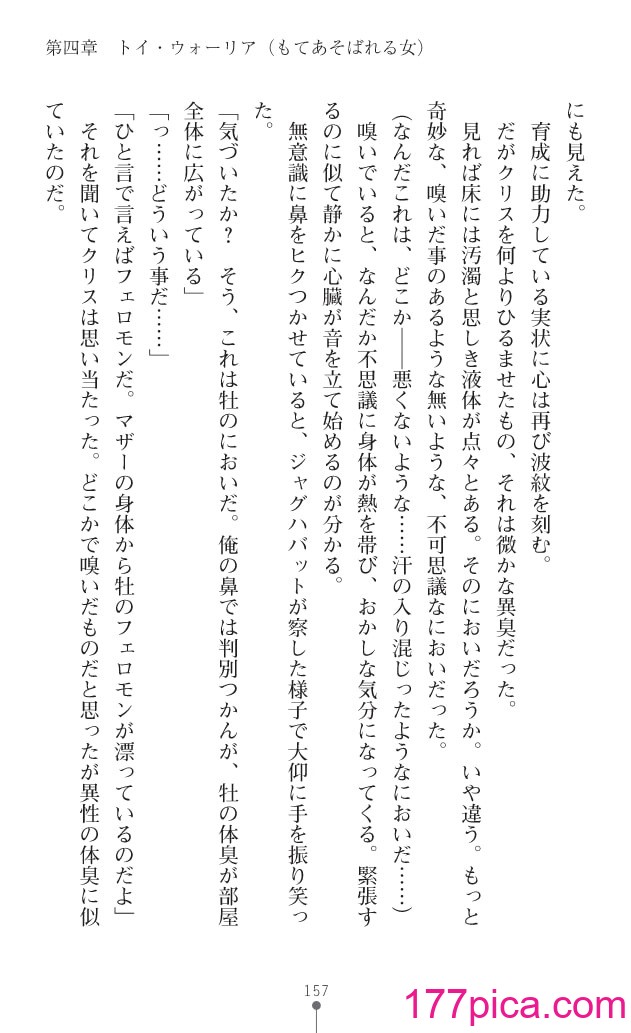 第四章　トイ・ウォーリア（もてあそばれる女）
にも見えた。
　育成に助力している実状に心は再び波紋を刻む。
　だがクリスを何よりひるませたもの、それは微かな異臭だった。
　見れば床には汚濁と思しき液体が点々とある。そのにおいだろうか。いや違う。もっと
奇妙な、嗅いだ事のあるような無いような、不可思議なにおいだった。
（なんだこれは、どこか――悪くないような……汗の入り混じったようなにおいだ……）
　嗅いでいると、なんだか不思議に身体が熱を帯び、おかしな気分になってくる。緊張す
るのに似て静かに心臓が音を立て始めるのが分かる。
　無意識に鼻をヒクつかせていると、ジャグハバットが察した様子で大仰に手を振り笑っ
た。
「気づいたか？　そう、これは牡のにおいだ。俺の鼻では判別つかんが、牡の体臭が部屋
全体に広がっている」
「っ……どういう事だ……」
「ひと言で言えばフェロモンだ。マザーの身体から牡のフェロモンが漂っているのだよ」
　それを聞いてクリスは思い当たった。どこかで嗅いだものだと思ったが異性の体臭に似
ていたのだ。
157
177pica.com